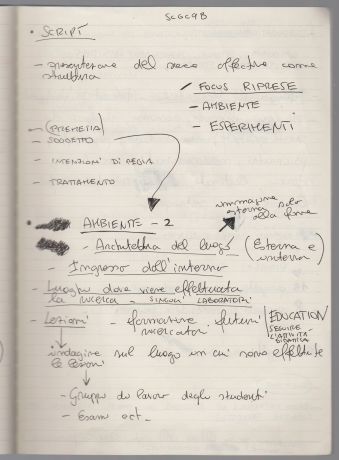 SCGC9B
• SCRIPT
- presentazione del sacco effettivo come
struttura
/ FOCUS RIPRESE
- AMBIENTE
- ESPERIMENTI
- (PREMESSA)
- SOGGETTO
- INTENZIONI DI REGIA
- TRATTAMENTO
esterna solo
alla fine
AMBIENTE - 2
- Architettura del luogo (Esterna e
interna)
- Ingresso dall'interno
- Luoghi dove viene effettuata
la ricerca - SINGOLI LABORATORI
- Lezioni - formazione futuri
ricercatori
EDUCATION
SEGUIRE
L'ATTIVITÀ
DIDATTICA
indagine sul luogo in cui sono effettuate
le lezioni
- Gruppi di lavoro degli studenti
- Esami ect.